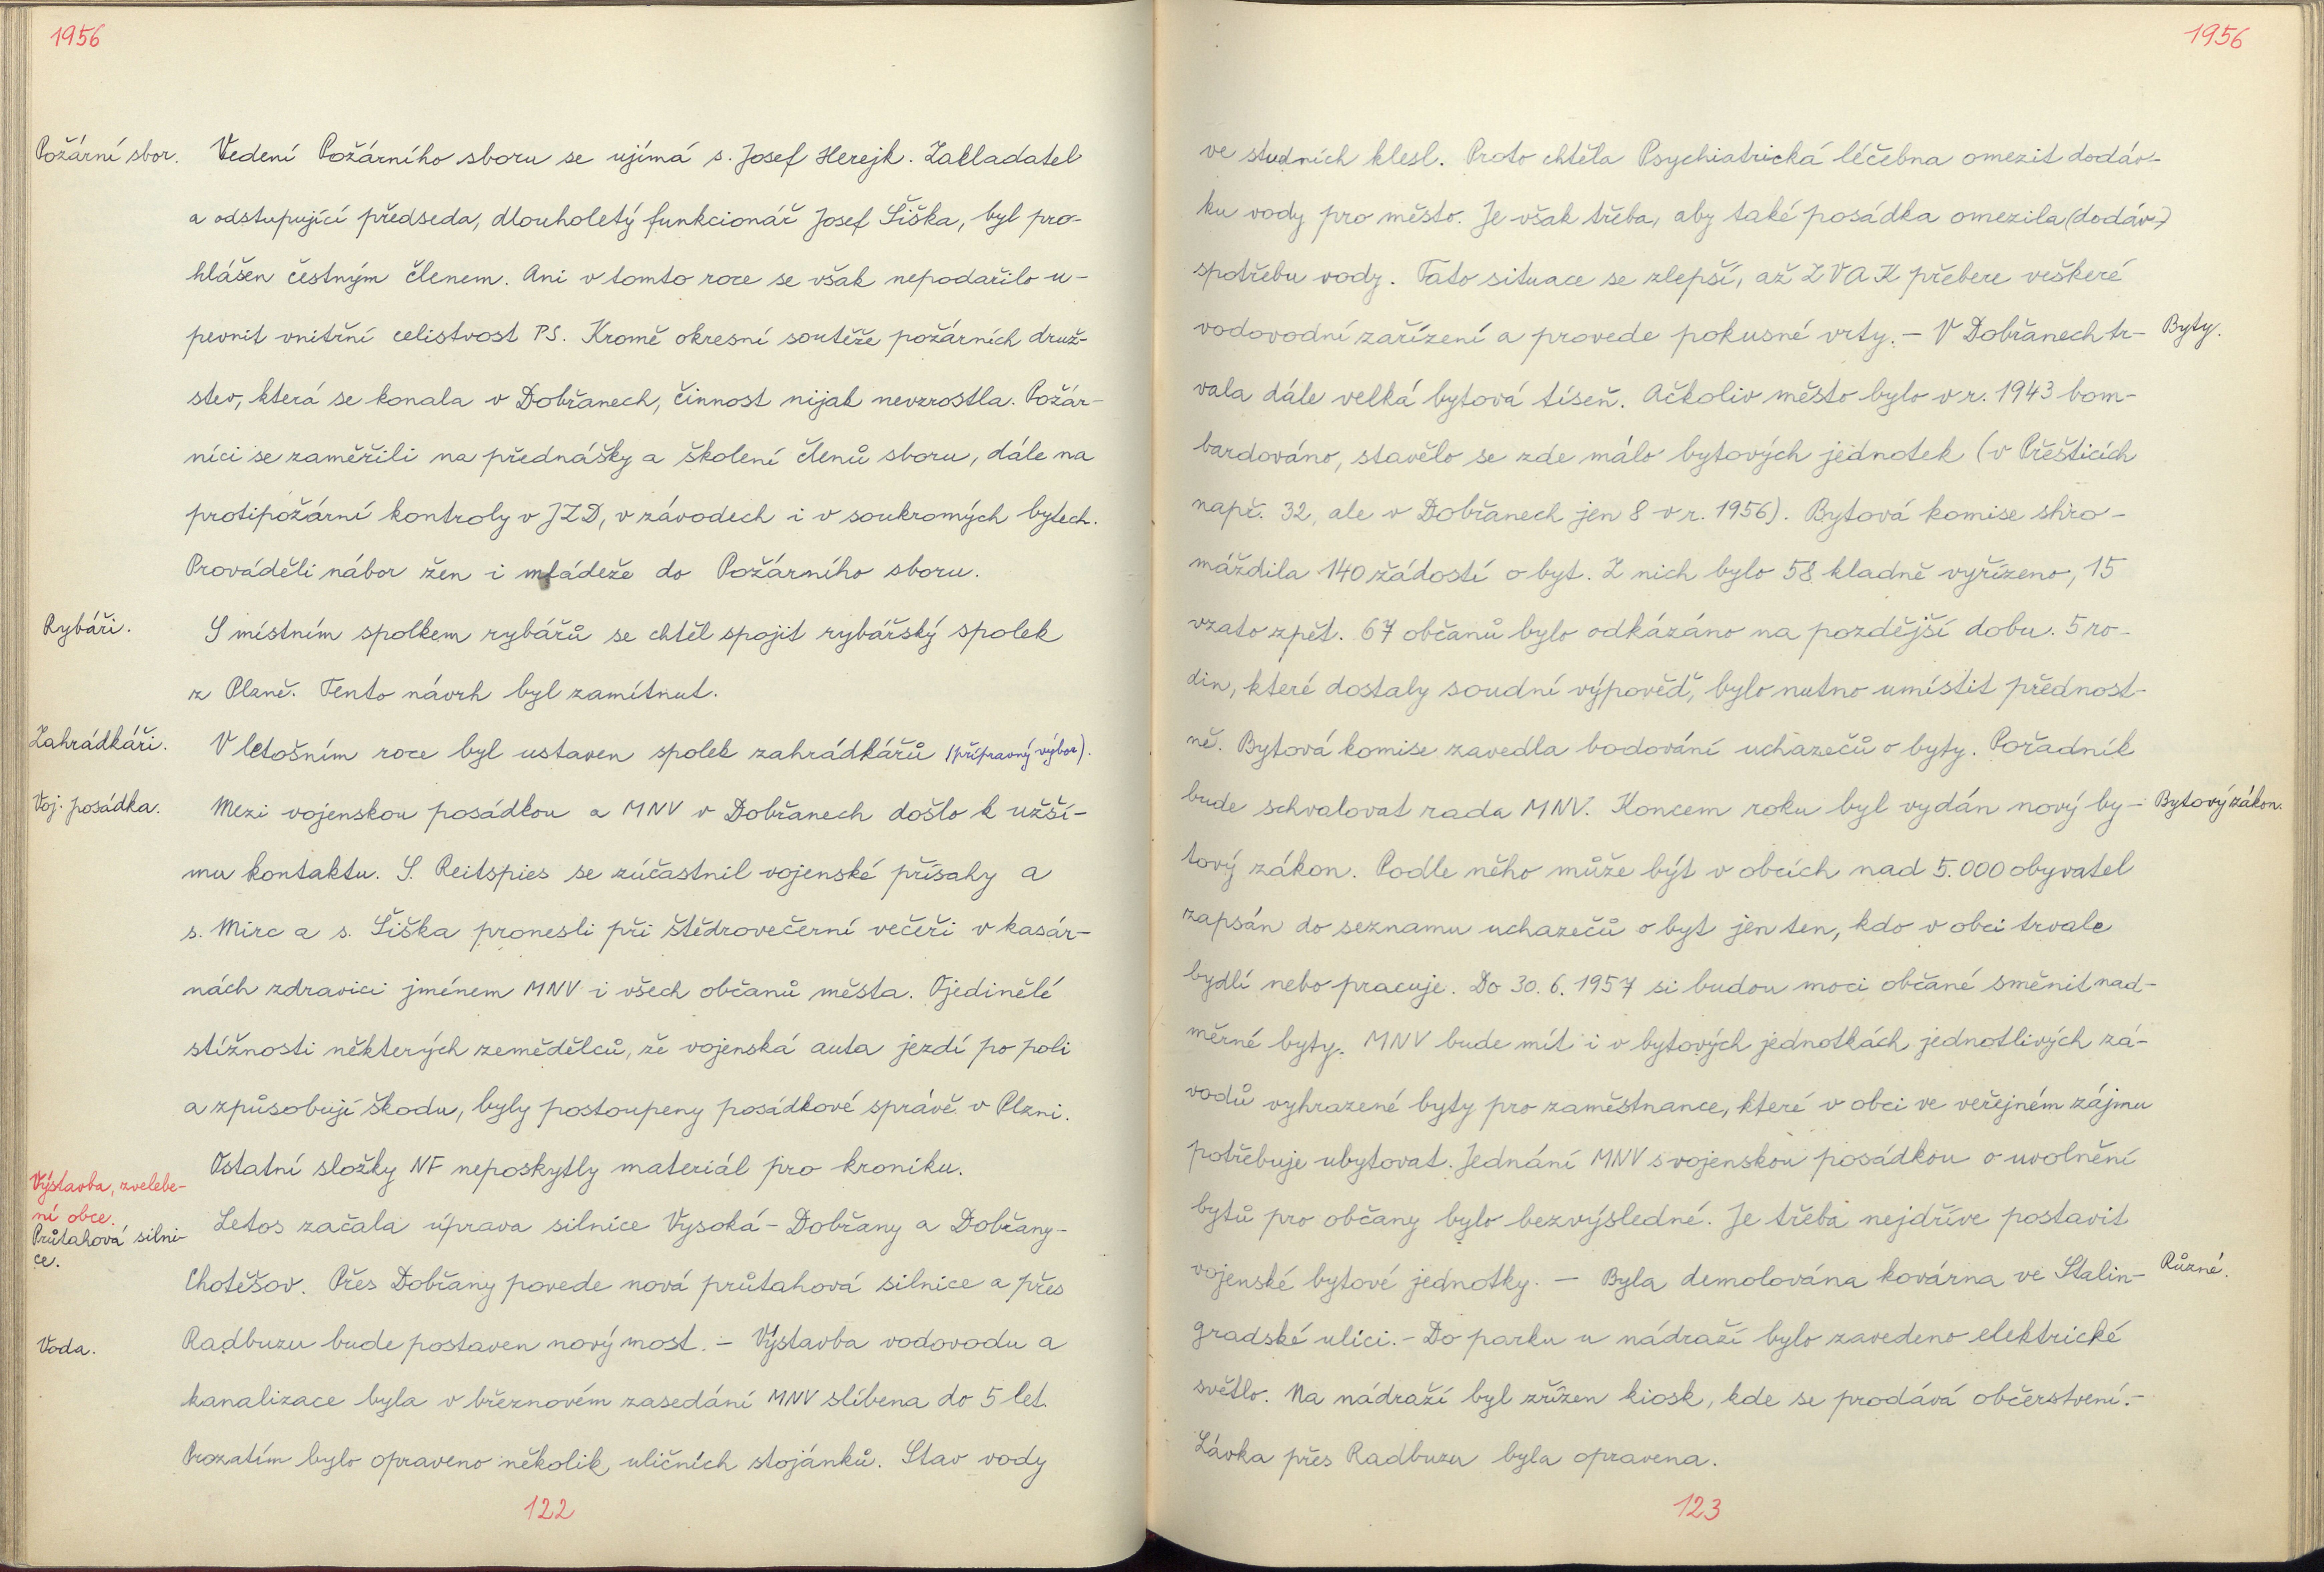 1956
Požární sbor.
Vedení Požárního sboru se ujímá s. Josef Herejk. Zakladatel
a odstupující předseda, dlouholetý funkcionář Josef Šiška, byl pro-
hlášen čestným členem. Ani v tomto roce se však nepodařilo u-
pevnit vnitřní celistvost PS. Kromě okresní soutěže požárních druž-
stev, která se konala v Dobřanech, činnost nijak nevzrostla. Požár-
níci se zaměřili na přednášky a školení členů sboru, dále na
protipožární kontroly v JZD, v závodech i v soukromých bytech.
Prováděli nábor žen i mládeže do Požárního sboru.
Rybáři.
S místním spolkem rybářů se chtěl spojit rybářský spolek
z Plzně. Tento návrh byl zamítnut.
Zahrádkáři.
V letošním roce byl ustaven spolek zahrádkářů (přípravný výbor).
Voj. posádka.
Mezi vojenskou posádkou a MNV v Dobřanech došlo k užší-
mu kontaktu. S. Reitspies se zúčastnil vojenské přísahy a
s. Mirc a s. Šiška pronesli při štědrovečerní večeři v kasár-
nách zdravici jménem MNV i všech občanů města. Ojedinělé
stížnosti některých zemědělců, že vojenská auta jezdí po poli
a způsobují škodu, byly postoupeny posádkové správě v Plzni.
Ostatní složky NF neposkytly materiál pro kroniku.
Výstavba, zvelebe-
ní obce.
Průtahová silni-
ce.
Letos začala úprava silnice Vysoká - Dobřany a Dobřany-
Chotěšov. Přes Dobřany povede nová průtahová silnice a přes
Voda.
Radbuzu bude postaven nový most. - Výstavba vodovodu a
kanalizace byla v březnovém zasedání MNV slíbena do 5 let.
Prozatím bylo opraveno několik uličních stojánků. Stav vody
122
1956
ve studních klesl. Proto chtěla Psychiatrická léčebna omezit dodáv-
ku vody pro město. Je však třeba, aby také posádka omezila (dodáv-)
spotřebu vody. Tato situace se zlepší, až ZVAK přebere veškeré
vodovodní zařízení a provede pokusné vrty. - V Dobřanech tr-
Byty.
vala dále velká bytová tíseň. Ačkoliv město bylo v r. 1943 bom-
bardováno, stavělo se zde málo bytových jednotek (v Přešticích
např. 32, ale v Dobřanech jen 8 v r. 1956). Bytová komise shro-
máždila 140 žádostí o byt. Z nich bylo 58 kladně vyřízeno, 15
vzato zpět. 67 občanů bylo odkázáno na pozdější dobu. 5 ro-
din, které dostaly soudní výpověď, bylo nutno umístit přednost-
ně. Bytová komise zavedla bodování uchazečů o byty. Pořadník
bude schvalovat rada MNV. Koncem roku byl vydán nový by-
Bytový zákon.
tový zákon. Podle něho může být v obcích nad 5.000 obyvatel
zapsán do seznamu uchazečů o byt jen ten, kdo v obci trvale
bydlí nebo pracuje. Do 30. 6. 1957 si budou moci občané směnit nad-
měrné byty. MNV bude mít i v bytových jednotkách jednotlivých zá-
vodů vyhrazené byty pro zaměstnance, které v obci ve veřejném zájmu
potřebuje ubytovat. Jednání MNV s vojenskou posádkou o uvolnění
bytů pro občany bylo bezvýsledné. Je třeba nejdříve postavit
vojenské bytové jednotky. - Byla demolována kovárna ve Stalin-
Různé.
gradské ulici. - Do parku u nádraží bylo zavedeno elektrické
světlo. Na nádraží byl zřízen kiosk, kde se prodává občerstvení. -
Lávka přes Radbuzu byla opravena.
123